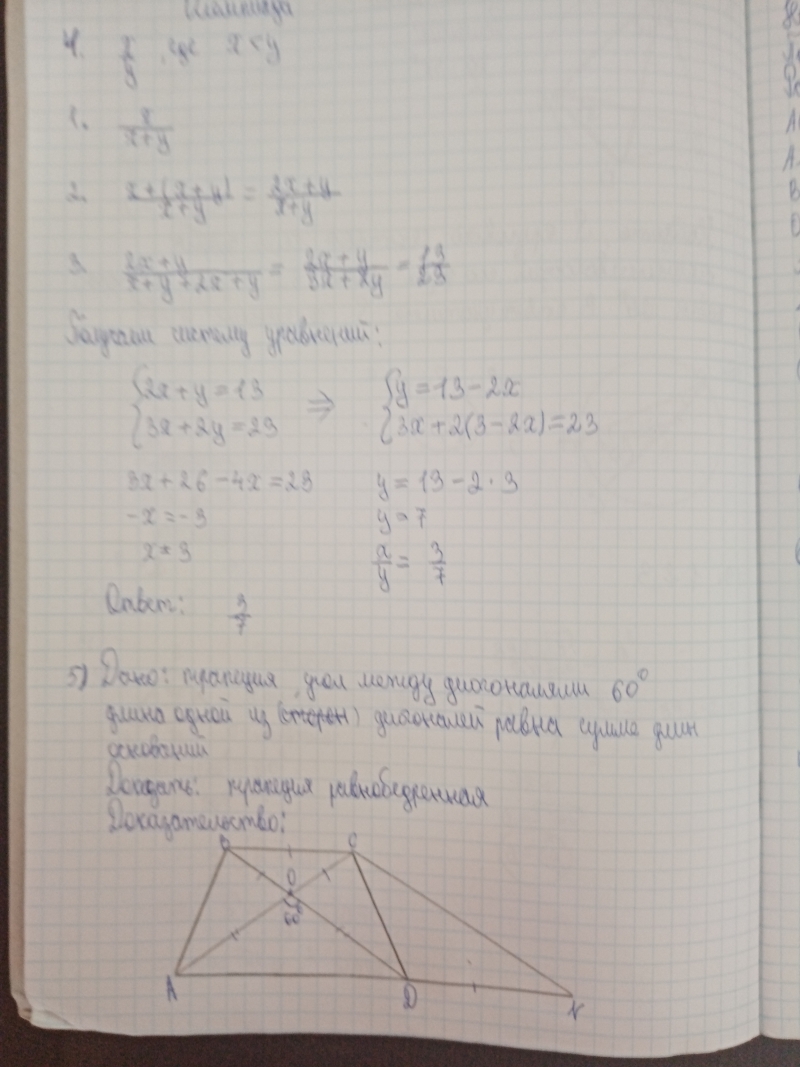 Олимпиада
4. x/y, где x < y
1. x/(x+y)
2. (x+(x+y))/(x+y) = (2x+y)/(x+y)
3. (2x+y)/(x+y+2x+y) = (2x+y)/(3x+2y) = 13/23
Получаем систему уравнений:
{2x+y=13 ⇒ {y=13-2x
{3x+2y=23 {3x+2(3-2x)=23
3x+26-4x=23 y=13-2·3
-x=-3 y=7
x=3 x/y = 3/7
Ответ: 3/7
5) Дано: трапеция, угол между диогоналями 60°
длина одной из (сторон) диогоналей равна сумме длин
оснований
Доказать: трапеция равнобедренная
Доказательство:
B C
O
60°
A D N